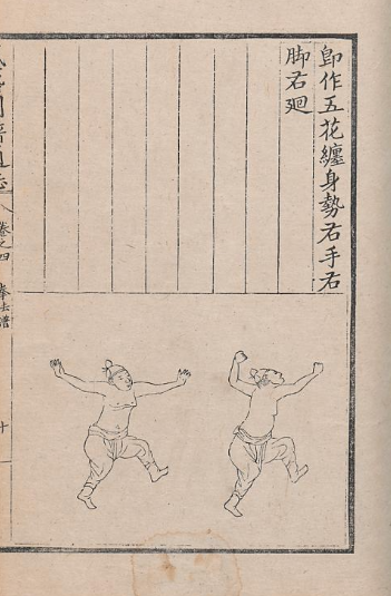 即作五花纏身勢右手右
脚右廻
卷之四
拳法譜
十